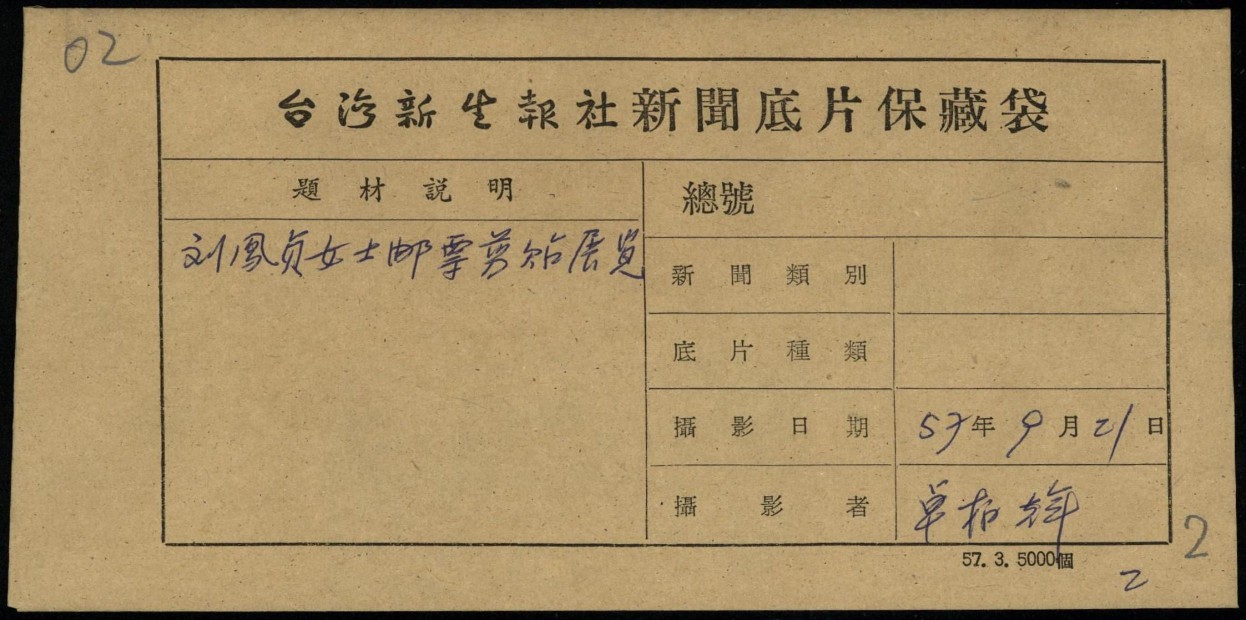 02
台灣新生報社新聞底片保藏袋
題材説明
刘鳳貞女士邮票剪贴展览
總號
新聞類別
底片種類
攝影日期 57年9月21日
攝影者 卓柏
57. 3. 5000個
2
2